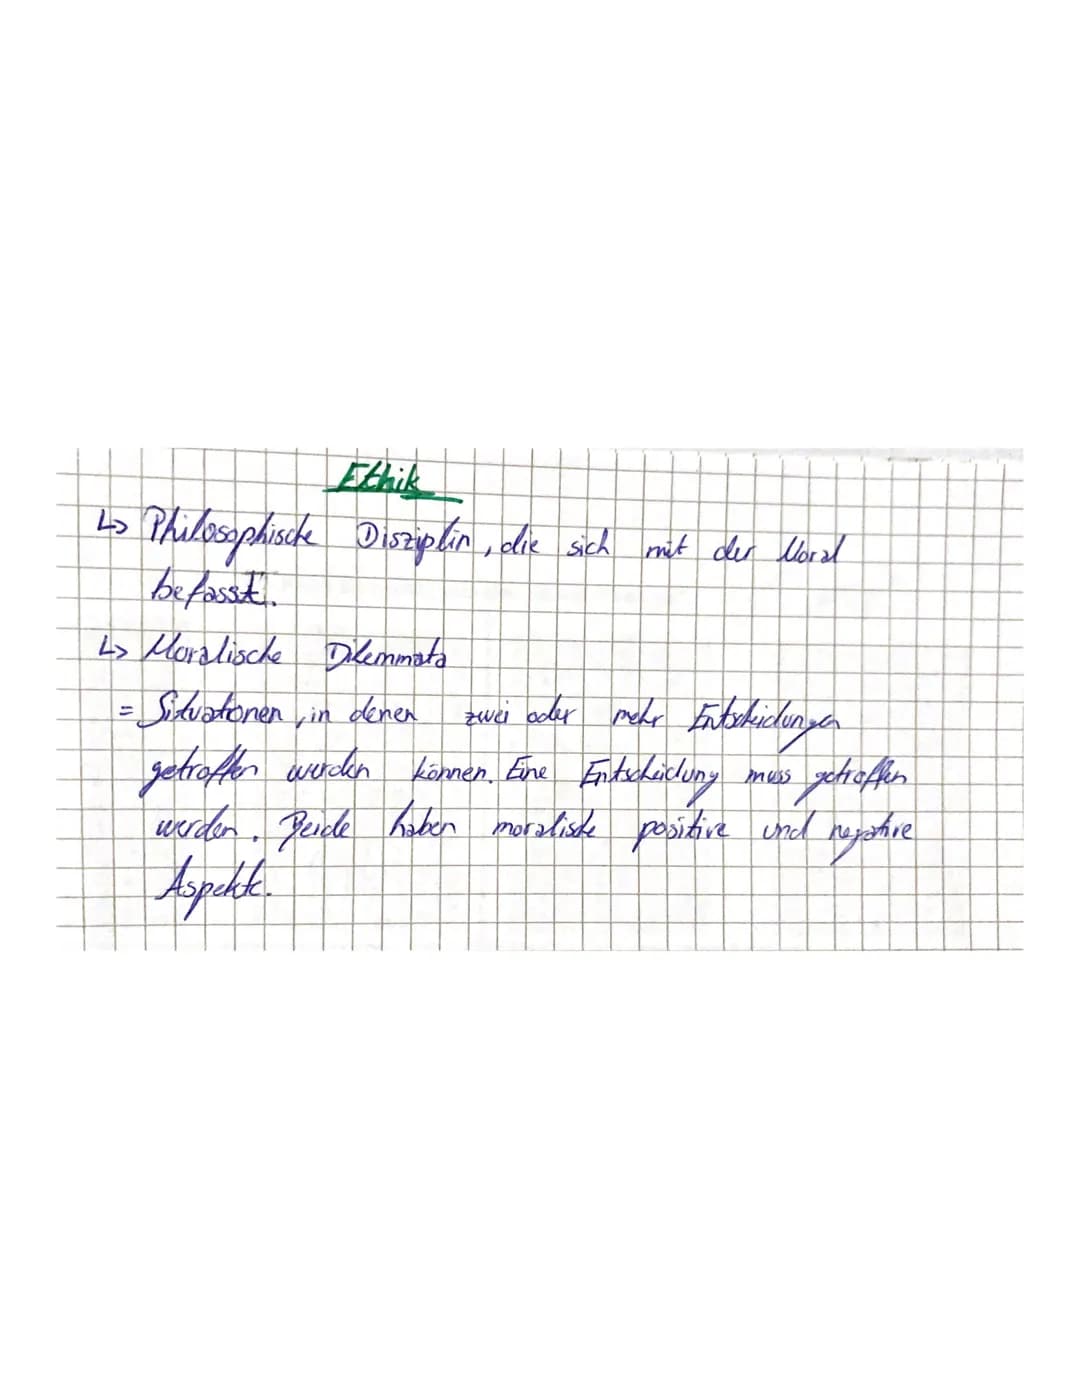 Ethik
↳ Philosophische Disziplin, die sich mit der Moral
befasst.
↳ Moralische Dilemmata
= Situationen, in denen zwei oder mehr Entscheidungen
getroffen werden können. Eine Entscheidung muss getroffen
werden. Beide haben moralische positive und negative
Aspekte.